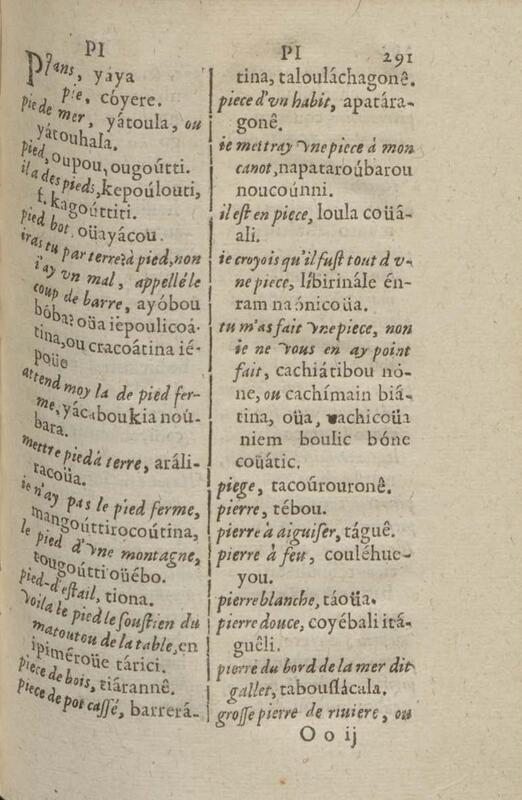 PI
Pians, yáya
pie, cóyere.
pie de mer, yátoula, ou
yátouhala.
pied, oupou, ougoútti.
il a des pieds, kepoúlouti,
f. kagoúttiti.
pied bot, oüayácou.
iras tu par terre? à pied, non
i'ay vn mal, appellé le
coup de barre, ayóbou
bóba? oüa iepoulicoá-
tina, ou cracoátina ié-
poüe
attend moy la de pied fer-
me, yácaboukia noú-
bara.
mettre pied à terre, aráli-
racoüa.
ie n'ay pas le pied ferme,
mangoúttirocoútina,
le pied d'vne montagne,
tougoútti oüébo.
pied-d'estail, tiona.
Voila le pied le soustien du
matoutou de la table, en
ipiméroüe tárici.
piece de bois, tiárannê.
piece de pot cassé, barrerá-
PI 291
tina, taloulâchagonê.
piece d'vn habit, apatára-
gonê.
ie mettray vne piece à mon
canot, napataroúbarou
noucoúnni.
il est en piece, loula coüá-
ali.
ie croyois qu'il fust tout d'v-
ne piece, líbirinále én-
ram naónicoüa.
tu m'as fait vne piece, non
ie ne vous en ay point
fait, cachiátibou nó-
ne, ou cachímain biá-
tina, oüa, vachicoüa
niem boulic bóne
coüátic.
piege, tacoúrouronê.
pierre, tébou.
pierre à aiguiser, táguê.
pierre à feu, couléhue-
you.
pierre blanche, táoüa.
pierre douce, coyébali itá-
guêli.
pierre du bord de la mer dit
gallet, tabouslácala.
grosse pierre de riuiere, ou
O o ij